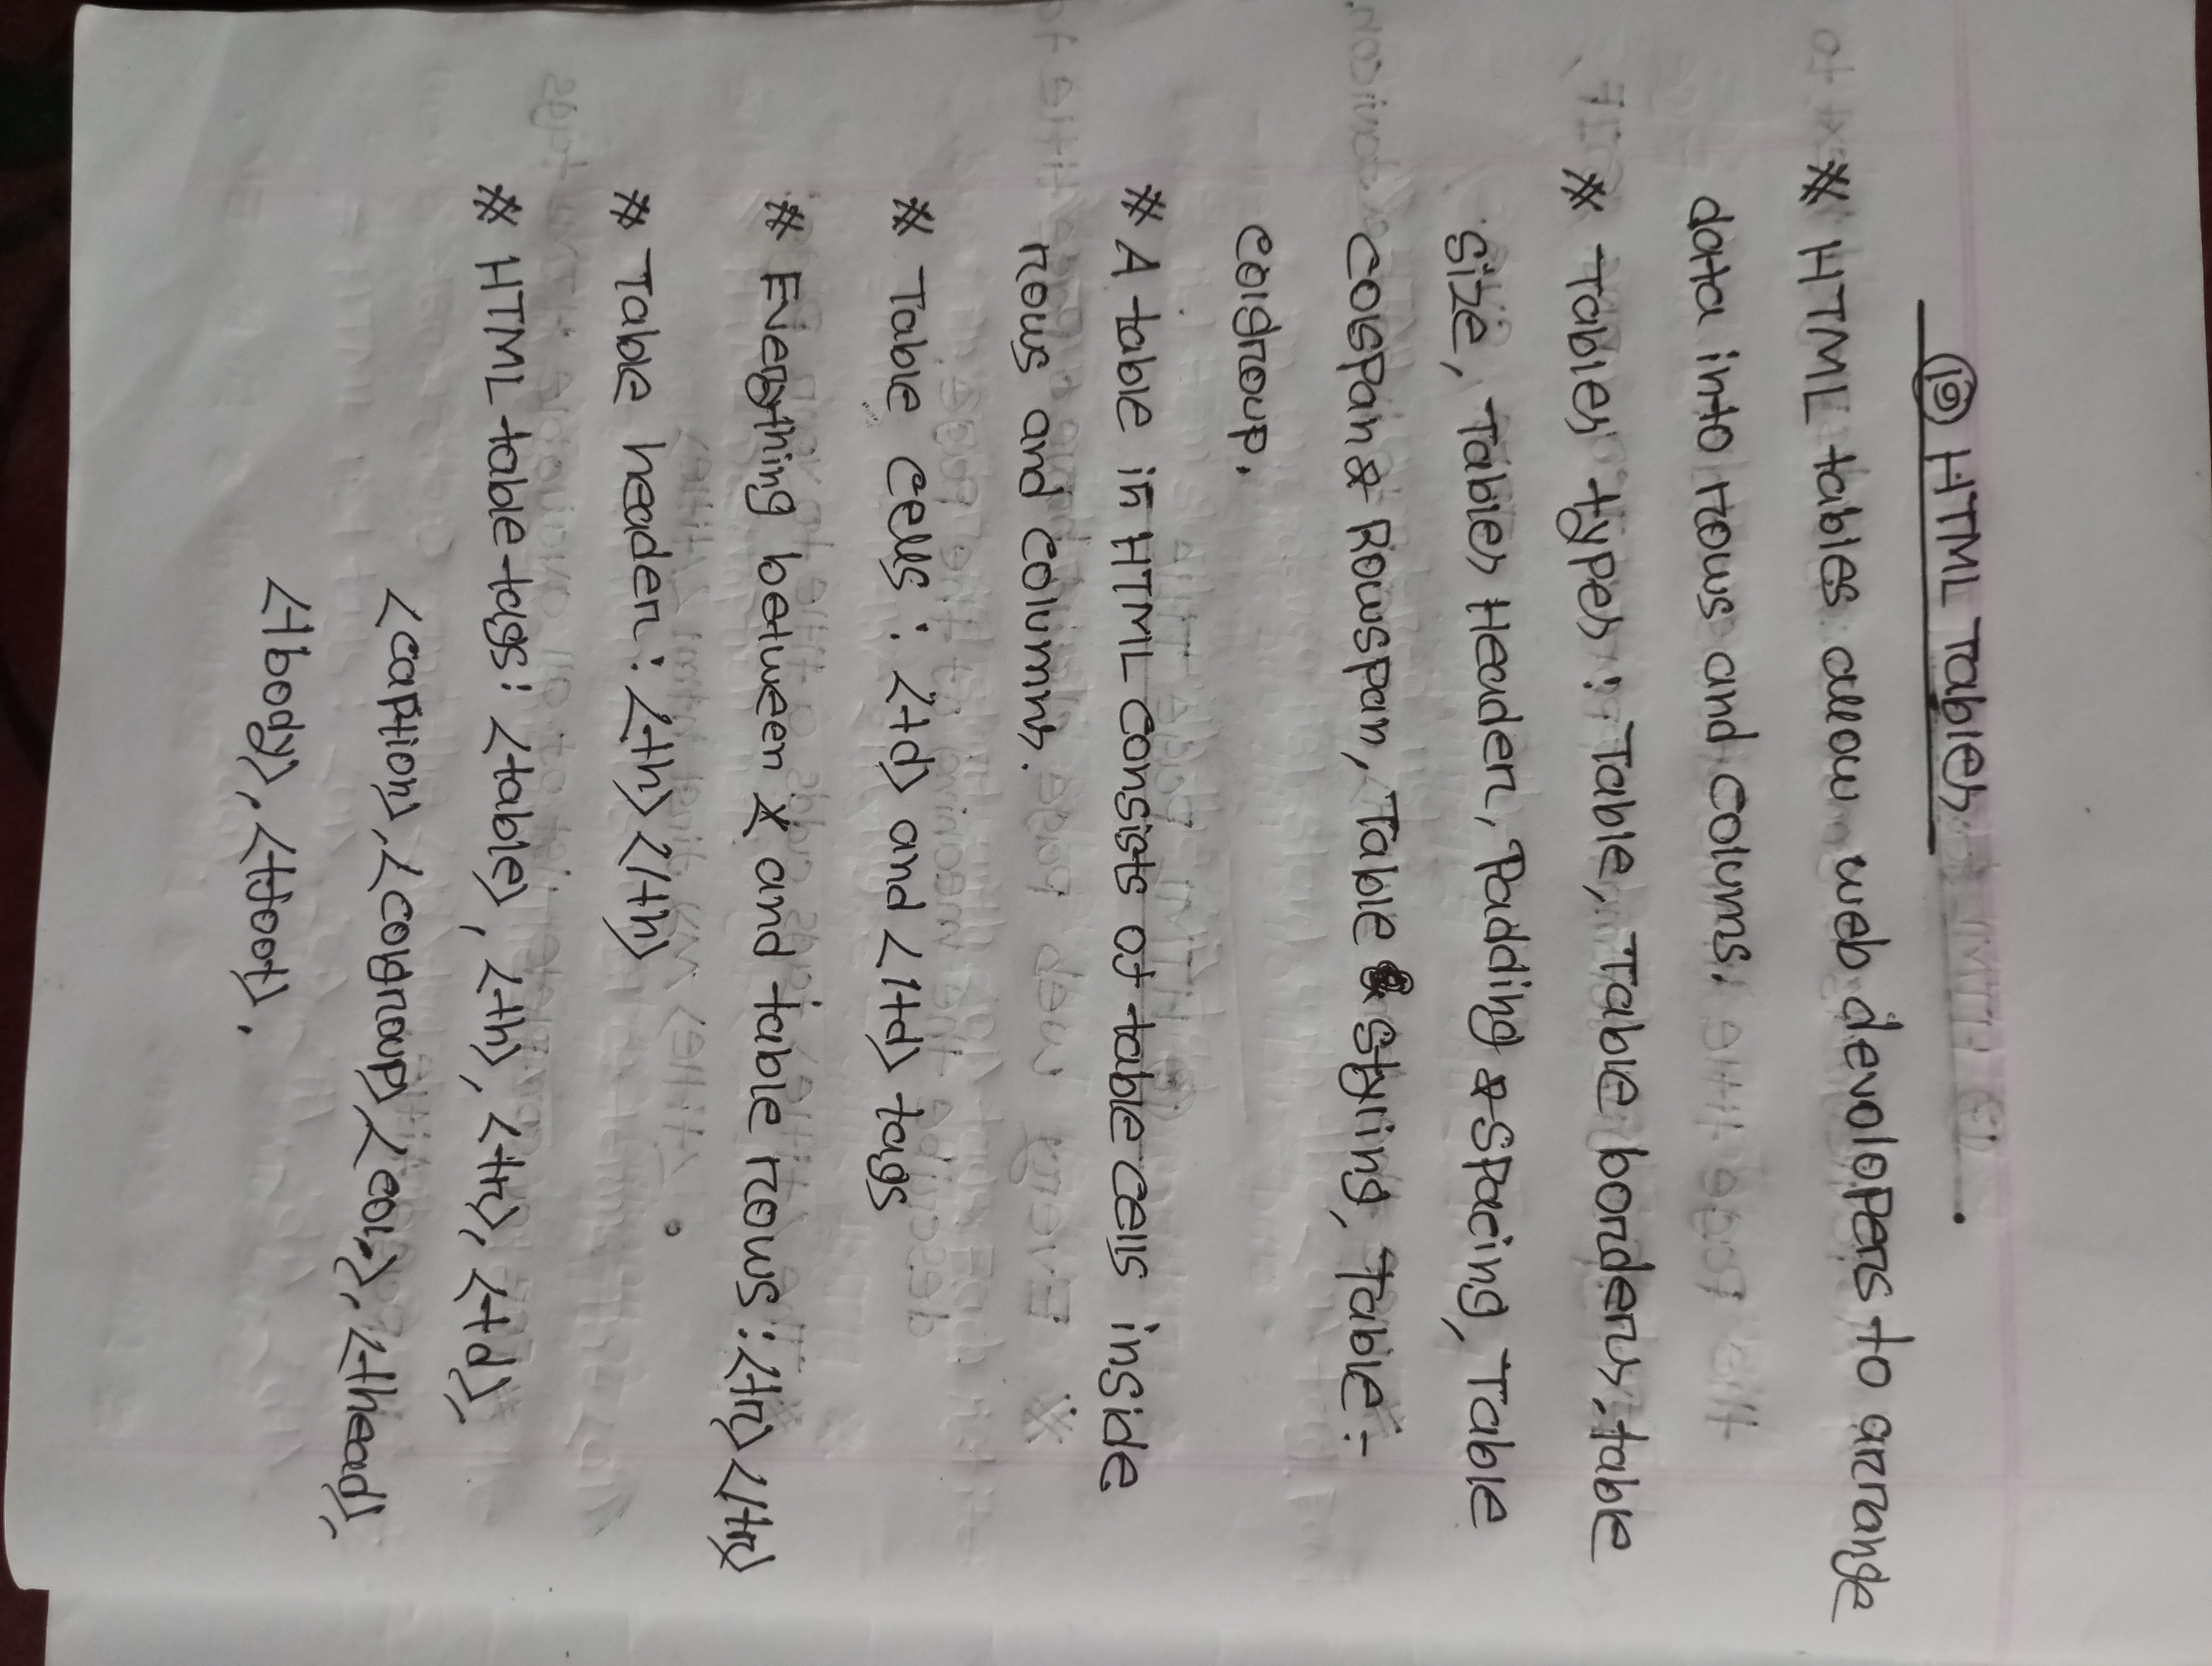 ⑲ HTML Tables
* HTML tables allow web devolopers to arrange
data into rows and colums.
* Tables types : Table, Table borders, table
size, Tables Header, Padding & Spacing, Table
colspan & Rowspan, Table Styling, Table -
colgroup.
# A table in HTML consists of table cells inside
rows and columns.
# Table cells : <td> and </td> tags
# Everything between and table rows : <tr> </tr>
# Table header : <th> </th>
# HTML table tags : <table>, <th>, <tr>, <td>,
<caption>, <colgroup>, <col>, <thead>,
<tbody>, <tfoot>.